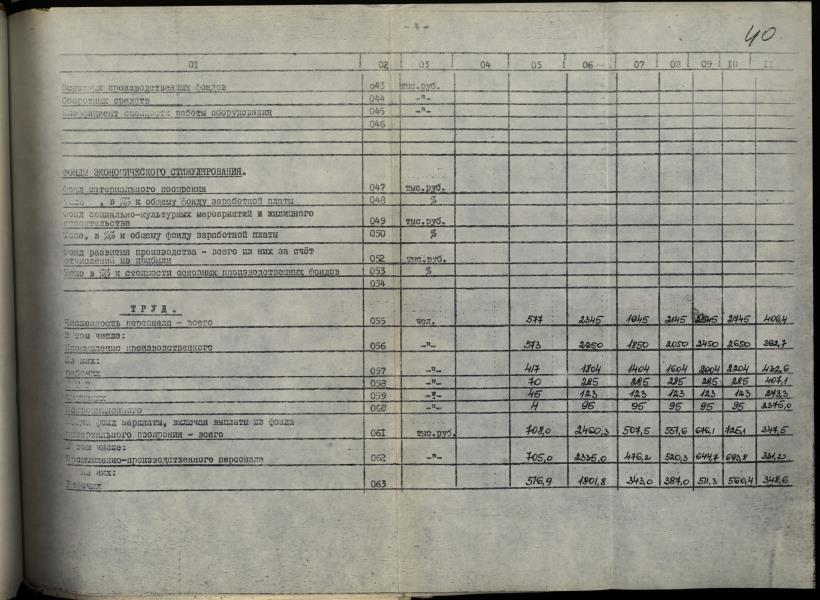 - 4 -
40
01 02 03 04 05 06 07 08 09 10 11
Основных производственных фондов 043 тыс.руб.
Оборотных средств 044 -"-
Коэффициент сменности работы оборудования 045 -"-
046
ФОНДЫ ЭКОНОМИЧЕСКОГО СТИМУЛИРОВАНИЯ.
Фонд материального поощрения 047 тыс.руб.
Тоже , в %% к общему фонду заработной платы 048 %
Фонд социально-культурных мероприятий и жилищного
строительства 049 тыс.руб.
Тоже, в %% к общему фонду заработной платы 050 %
Фонд развития производства - всего из них за счёт
отчислений из прибыли 052 тыс.руб.
Тоже в %% к стоимости основных производственных фондов 053 %
054
ТРУД.
Численность персонала - всего 055 чел. 577 2345 1945 2145 2545 2745 406,4
В том числе:
Промышленно производственного 056 -"- 573 2250 1850 2050 2450 2650 392,7
Из них:
рабочих 057 -"- 417 1804 1404 1604 2004 2204 432,6
058 -"- 70 285 285 285 285 285 407,1
059 -"- 45 123 123 123 123 123 273,3
Непромышленного 060 -"- 4 95 95 95 95 95 2375,0
Общий фонд зарплаты, включая выплаты из фонда
материального поощрения - всего 061 тыс.руб. 708,0 2460,3 507,5 551,6 676,1 725,1 347,5
В том числе:
Промышленно-производственного персонала 062 -"- 705,0 2335,0 476,2 520,3 644,7 693,8
из них:
Рабочих 063 516,9 1801,8 343,0 387,0 511,3 560,4 348,6